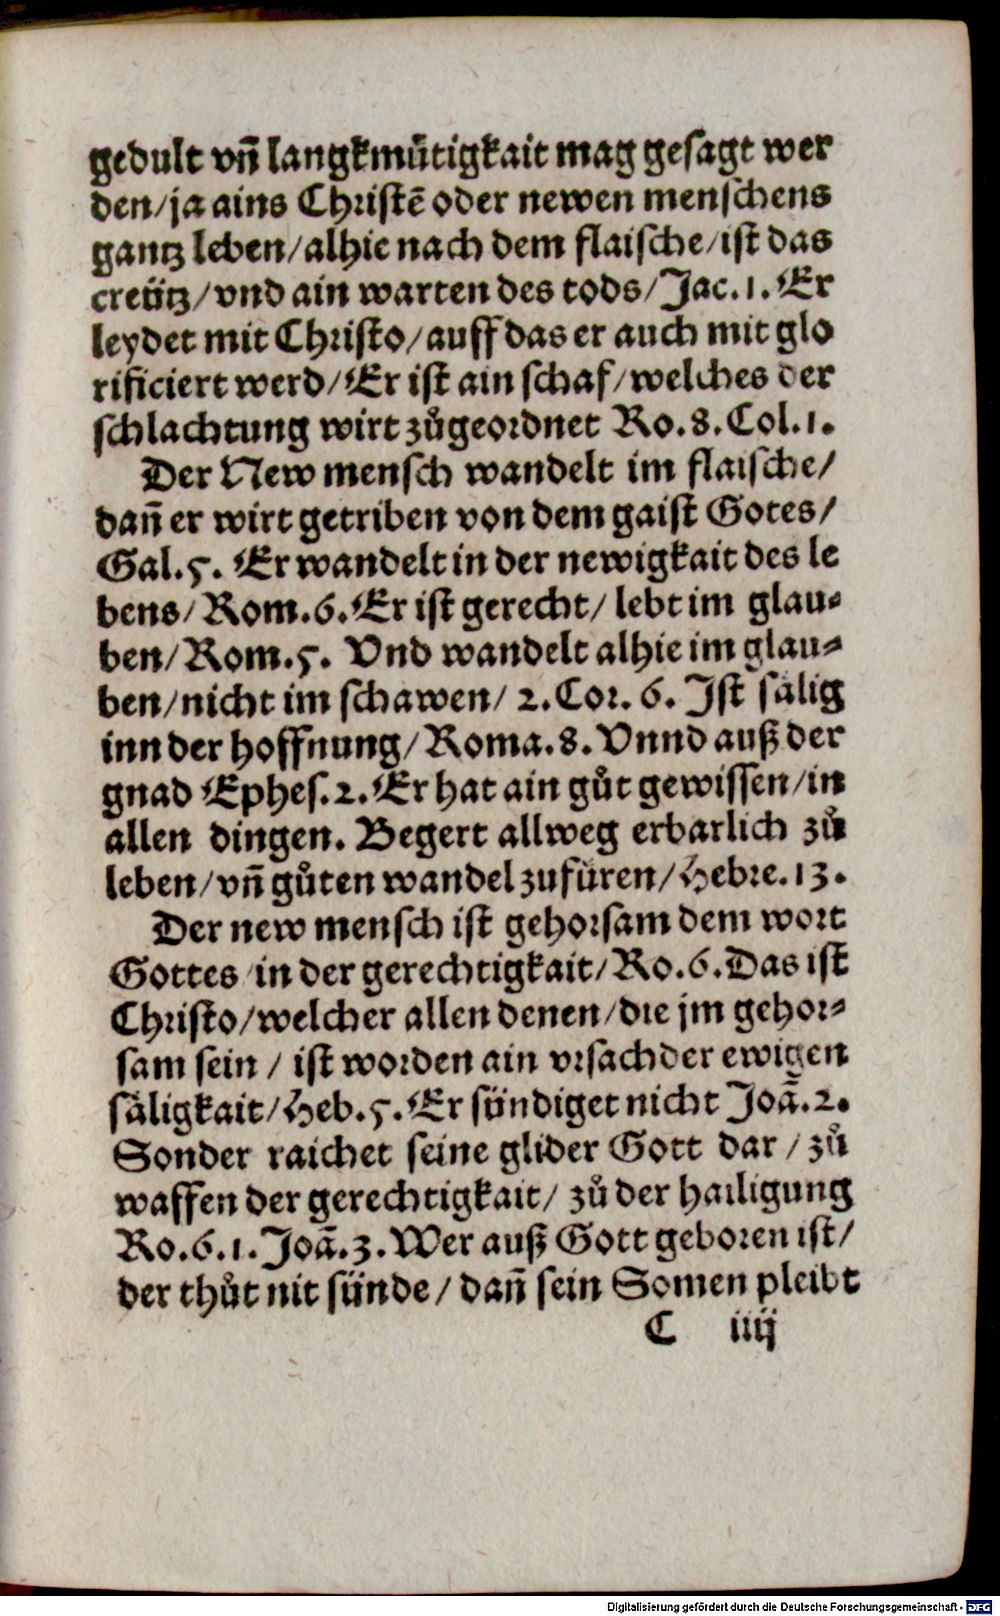 gedult vn̄ langkmuͤtigkait mag gesagt wer
den/ja ains Christē oder newen menschens
gantz leben/alhie nach dem flaische/ist das
creütz/vnd ain warten des tods/Jac.1. Er
leydet mit Christo/auff das er auch mit glo
rificiert werd/Er ist ain schaf/welches der
schlachtung wirt zuͦgeordnet Ro.8.Col.1.
Der New mensch wandelt im flaische/
dan̄ er wirt getriben von dem gaist Gotes/
Gal.5. Er wandelt in der newigkait des le
bens/Rom.6.Er ist gerecht/lebt im glau-
ben/Rom.5. Vnd wandelt alhie im glau-
ben/nicht im schawen/2.Cor.6. Ist saͤlig
inn der hoffnung/Roma.8.Vnnd auß der
gnad Ephes.2.Er hat ain guͦt gewissen/in
allen dingen. Begert allweg erbarlich zuͦ
leben/vn̄ guͦten wandel zufüren/Hebre.13.
Der new mensch ist gehorsam dem wort
Gottes/in der gerechtigkait/Ro.6.Das ist
Christo/welcher allen denen/die jm gehor-
sam sein/ist worden ain vrsach der ewigen
saͤligkait/Heb.5.Er sündiget nicht Joā.2.
Sonder raichet seine glider Gott dar/zuͦ
waffen der gerechtigkait/zuͦ der hailigung
Ro.6.1.Joā.3.Wer auß Gott geboren ist/
der thuͦt nit sünde/dan̄ sein Somen pleibt
C iiij
Digitalisierung gefördert durch die Deutsche Forschungsgemeinschaft - DFG